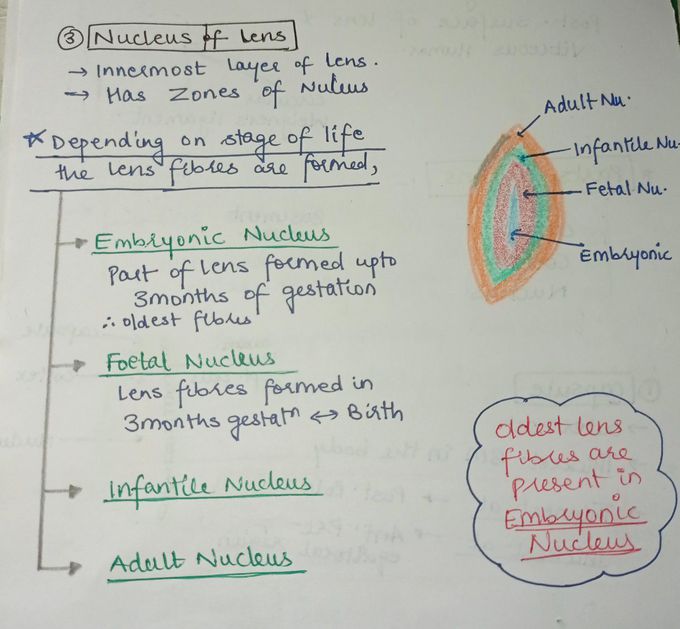 ③ Nucleus of Lens
→ Innermost Layer of Lens.
→ Has Zones of Nuleus
* Depending on stage of life
the lens fibres are formed,
Embryonic Nucleus
Part of Lens formed upto
3months of gestation
∴ oldest fibres
Foetal Nucleus
Lens fibres formed in
3months gestatⁿ ↔ Birth
Infantile Nucleus
Adult Nucleus
Adult Nu.
Infantile Nu.
Fetal Nu.
Embryonic
oldest lens
fibres are
present in
Embryonic
Nucleus